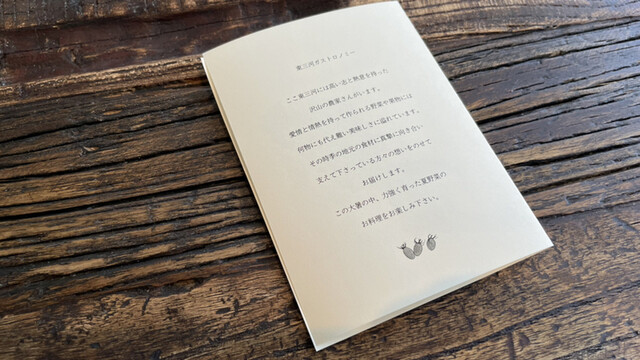 東三河ガストロノミー
ここ東三河には高い志と熱意を持った
沢山の農家さんがいます。
愛情と情熱を持って作られる野菜や果物には
何物にも代え難い美味しさに溢れています。
その時季の地元の食材に真摯に向き合い
支えて下さっている方々の想いをのせて
お届けします。
この大暑の中、力強く育った夏野菜の
お料理をお楽しみ下さい。